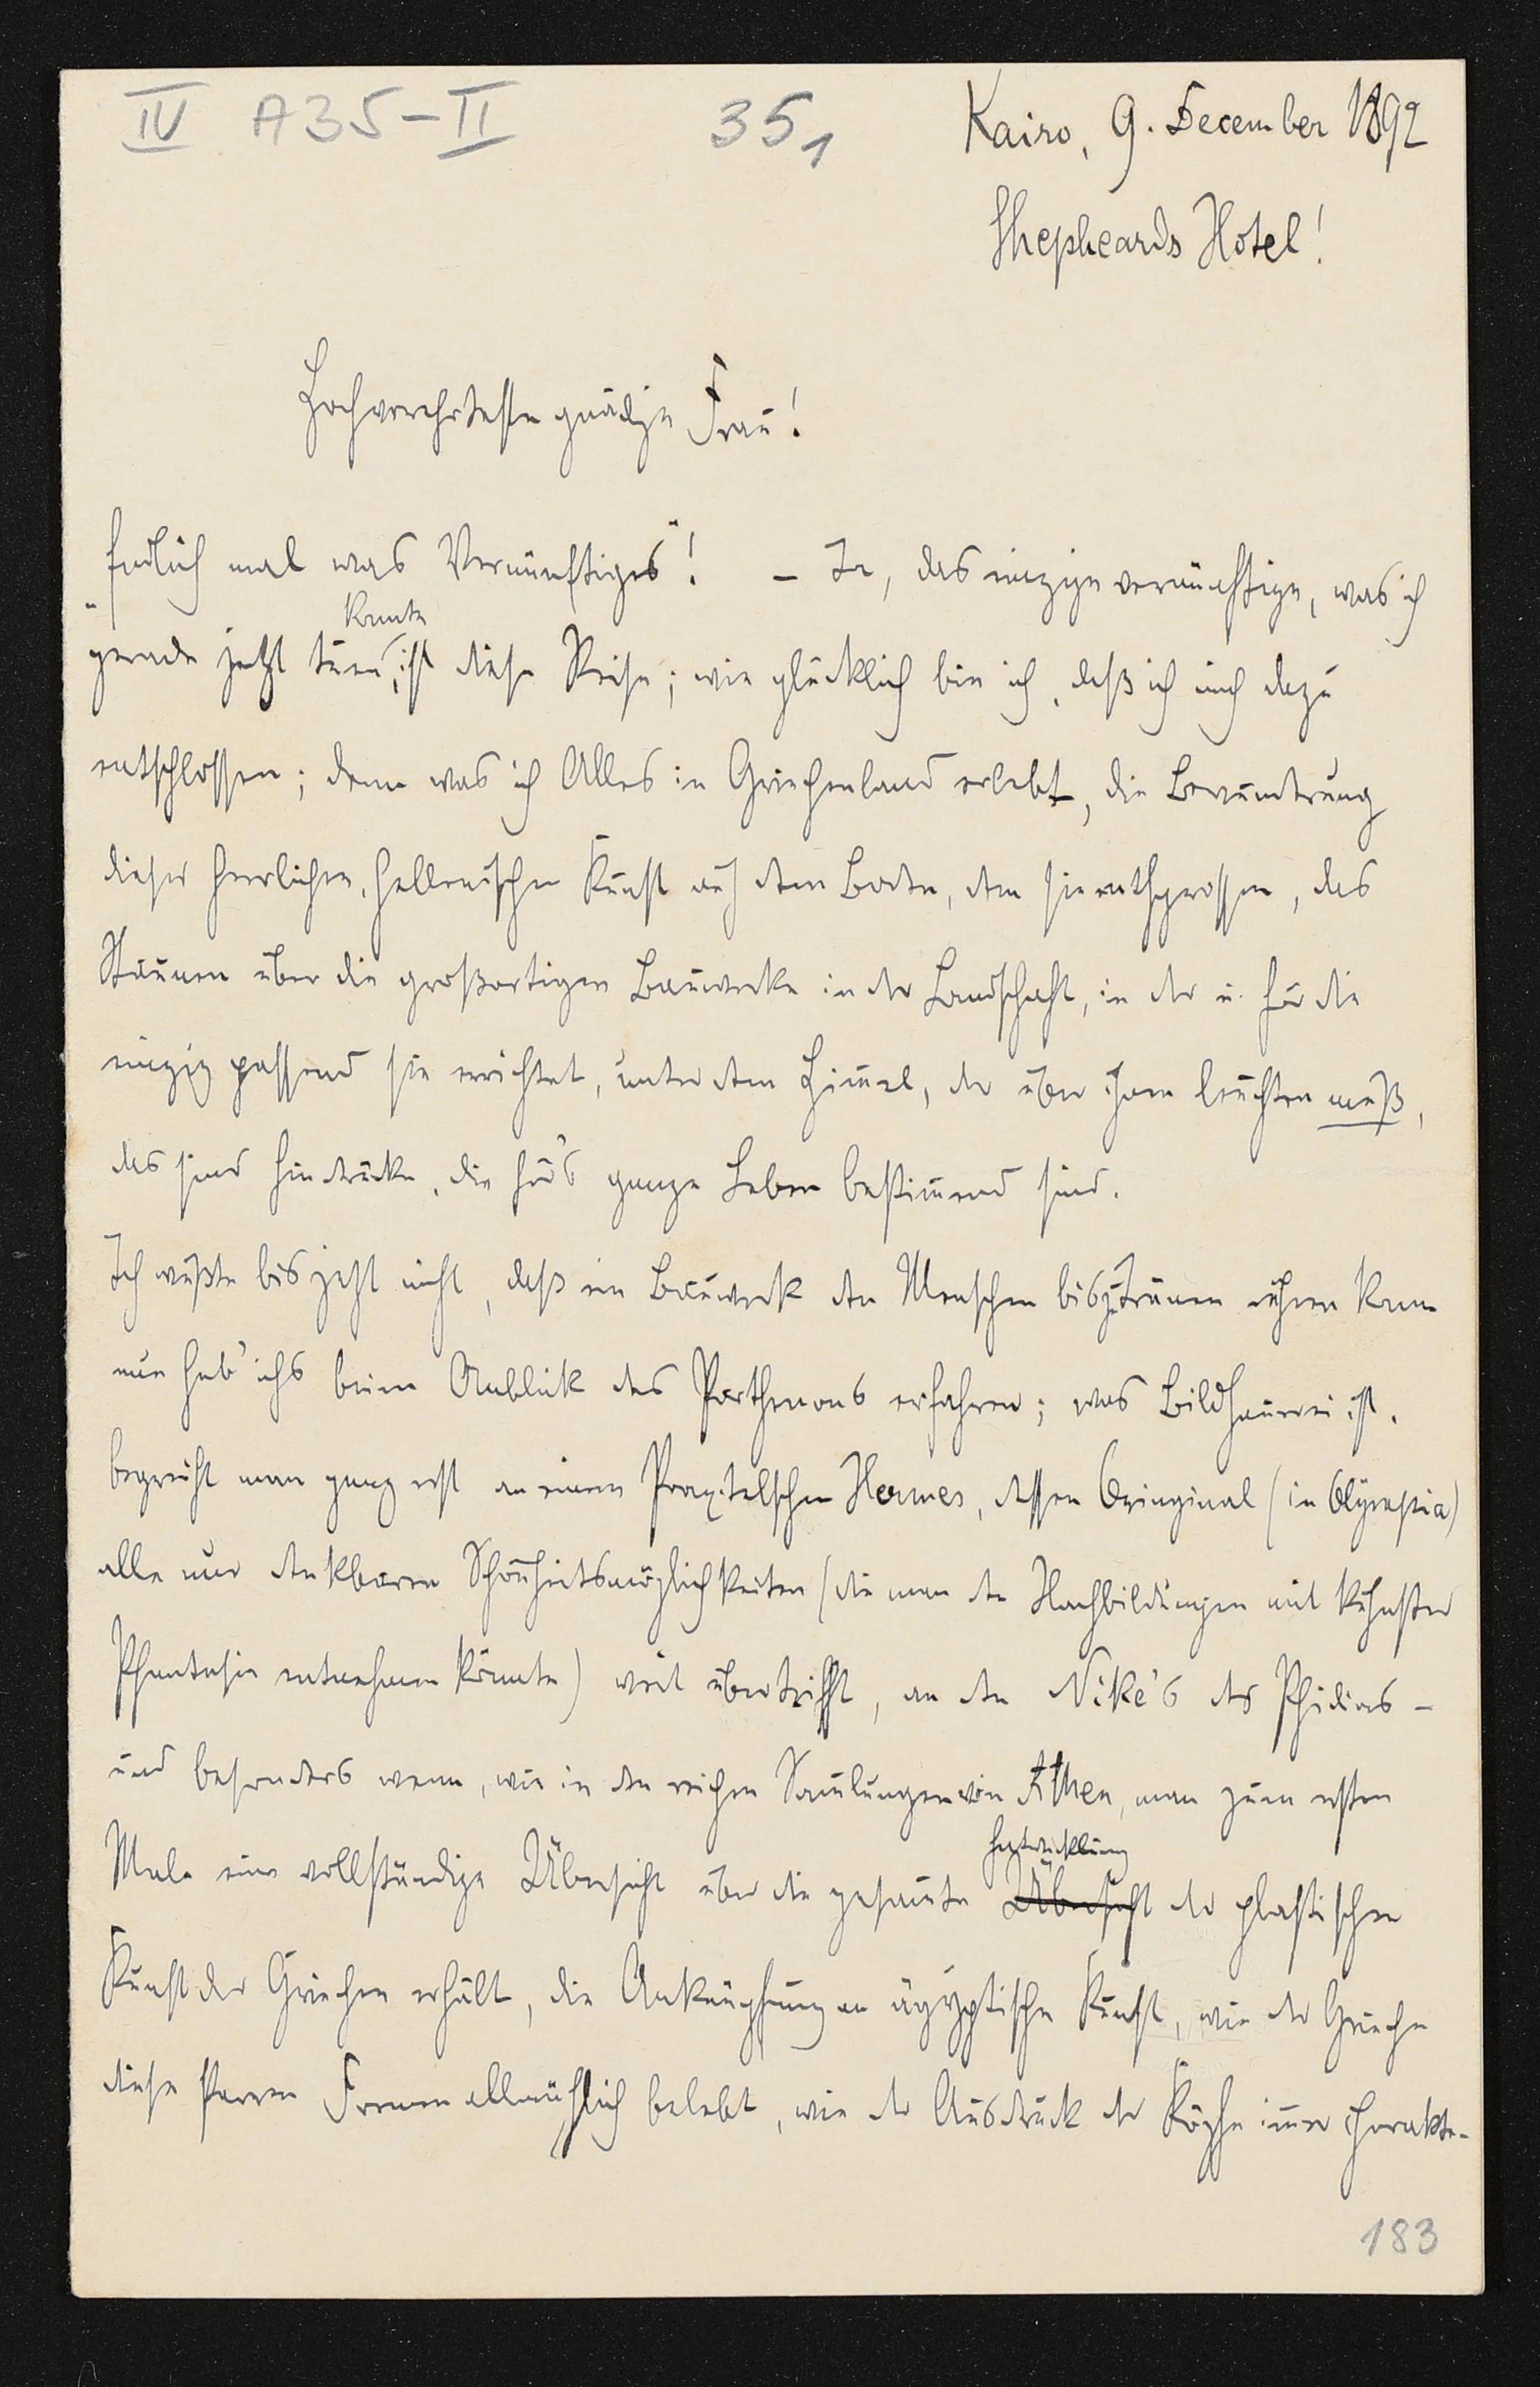 IV A35-II 35₁ Kairo, 9. December 1892
Shepheards Hotel!
Hochverehrteste gnädige Frau!
„Endlich mal was Vernünftiges“! – Ja, das einzige vernünftige, was ich
konnte
gerade jetzt tuen, ist diese Reise; wie glücklich bin ich, daß ich mich dazu
entschlossen; denn was ich Alles in Griechenland erlebt, die Bewunderung
dieser herrlichen, hellenischen Kunst auf dem Boden, dem sie entsprossen, das
Staunen über die großartigen Bauwerke in der Landschaft, in der u. für die
einzig passend sie errichtet, unter dem Him̅el, der über ihnen leuchten muß,
das sind Eindrücke, die für's ganze Leben bestim̅end sind.
Ich wußte bis jetzt nicht, daß ein Bauwerk den Menschen bis zu Tränen rühren kann
nun hab' ichs beim Anblick des Parthenons erfahren; was Bildhauerei ist,
begreift man ganz erst an einem Praxitelschen Hermes, dessen Oringinal (in Olympia)
alle nur denkbaren Schönheitsmöglichkeiten (die man den Nachbildungen mit kühnster
Phantasie entnehmen könnte) weit übertrifft, an den Nike's des Phidias –
und besonders wenn, wie in den reichen Sam̅lungen von Athen, man zum ersten
Entwicklung
Male eine vollständige Übersicht über die gesam̅te Übersicht der plastischen
Kunst der Griechen erhält, die Anknüpfung an ägyptische Kunst, wie der Grieche
diese starren Formen allmählich belebt, wie der Ausdruck der Köpfe im̅er charakte-
183